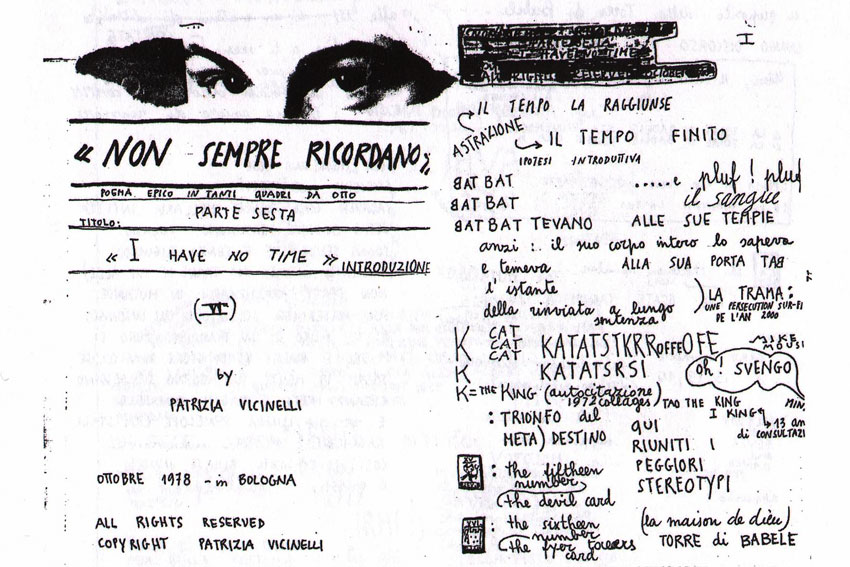 « NON SEMPRE RICORDANO »
POEMA EPICO IN TANTI QUADRI DA OTTO
PARTE SESTA
TITOLO:
« I HAVE NO TIME » INTRODUZIONE
(VI)
by
PATRIZIA VICINELLI
OTTOBRE 1978 - in BOLOGNA
ALL RIGHTS RESERVED
COPYRIGHT PATRIZIA VICINELLI
I
IL TEMPO LA RAGGIUNSE
ASTRAZIONE
IL TEMPO FINITO
IPOTESI INTRODUTTIVA
BAT BAT .....e pluf! pluf
BAT BAT il sangue
BAT BAT TEVANO ALLE SUE TEMPIE
anzi :. il suo corpo intero lo sapeva
e temeva ALLA SUA PORTA TAB
l'istante
della rinviata a lungo sentenza!
) LA TRAMA:
UNE PERSECUTION SUR-FI
DE L'AN 2000
K CAT CAT CAT KATATSTKRROFFEOFFE
K KATATSRSI
oh! SVENGO
K = THE KING (autocitazione) TAO THE KING
1972 collages
I KING
13 an
di CONSULTAZI
MIN.
: TRIONFO del
META) DESTINO
QUI
RIUNITI I
PEGGIORI
STEREOTYPI
: the fifteen
number
(the devil card
: the sixteen
number
(the fyer towers
card
(la maison de dieu)
TORRE di BABELE